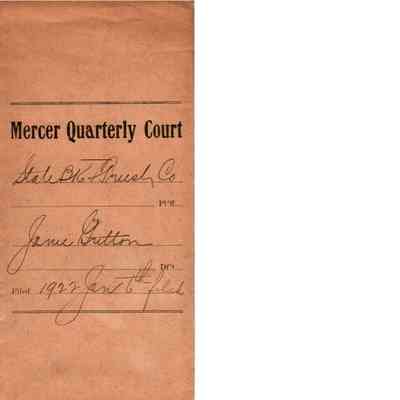 Mercer Quarterly Court
State BK & Trust Co
Plff.
Janie Gritton
Dft.
Filed 1922 Jan 6th